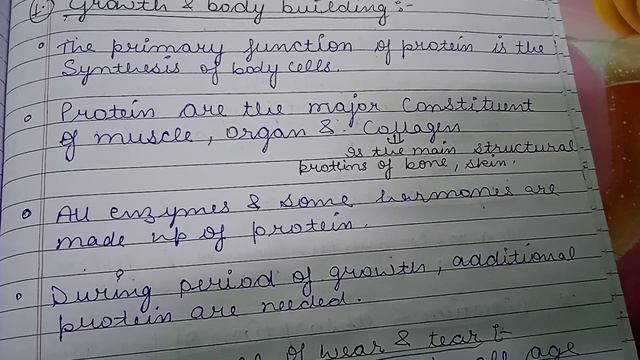 1. Growth & body building :-
The primary function of protein is the
Synthesis of body cells.
Protein are the major constituent
of muscle, organ & Collagen
is the main structural
proteins of bone, skin.
All enzymes & some harmones are
made up of protein.
During period of growth, additional
protein are needed.
of wear & tear :-
all age